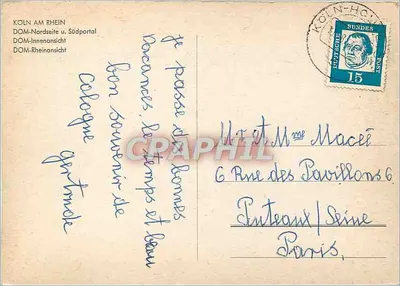 KÖLN AM RHEIN
DOM-Nordseite u. Südportal
DOM-Innenansicht
DOM-Rheinansicht
je passe de bonnes
vacances, le temps est beau
bon souvenir de
Cologne
gertrude
KÖLN-
DEUTSCHE BUNDESPOST
15
Mr et Mme Maceé
6 Rue des Pavillons 6
Puteaux/Seine
Paris.
CPAPHIL